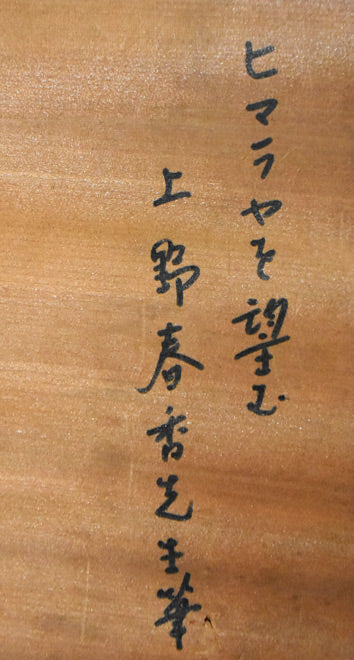 ヒマラヤを望む
上野春香先生筆